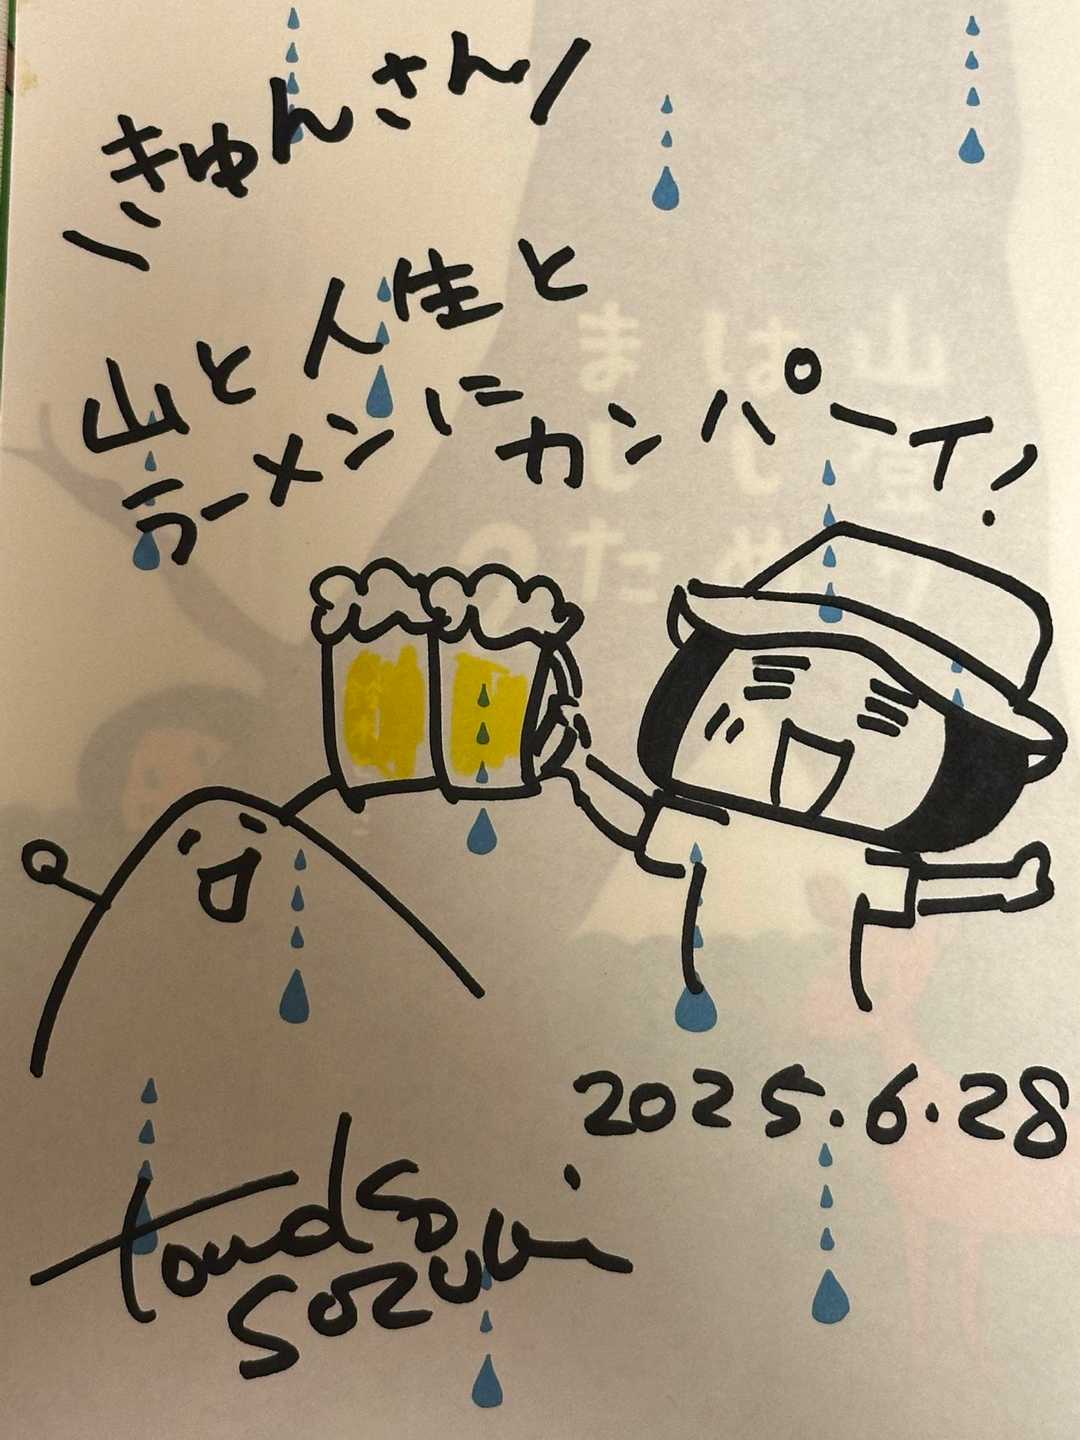 きゅんさん
山と人生と
ラーメンにカンパーイ!
2025.6.28